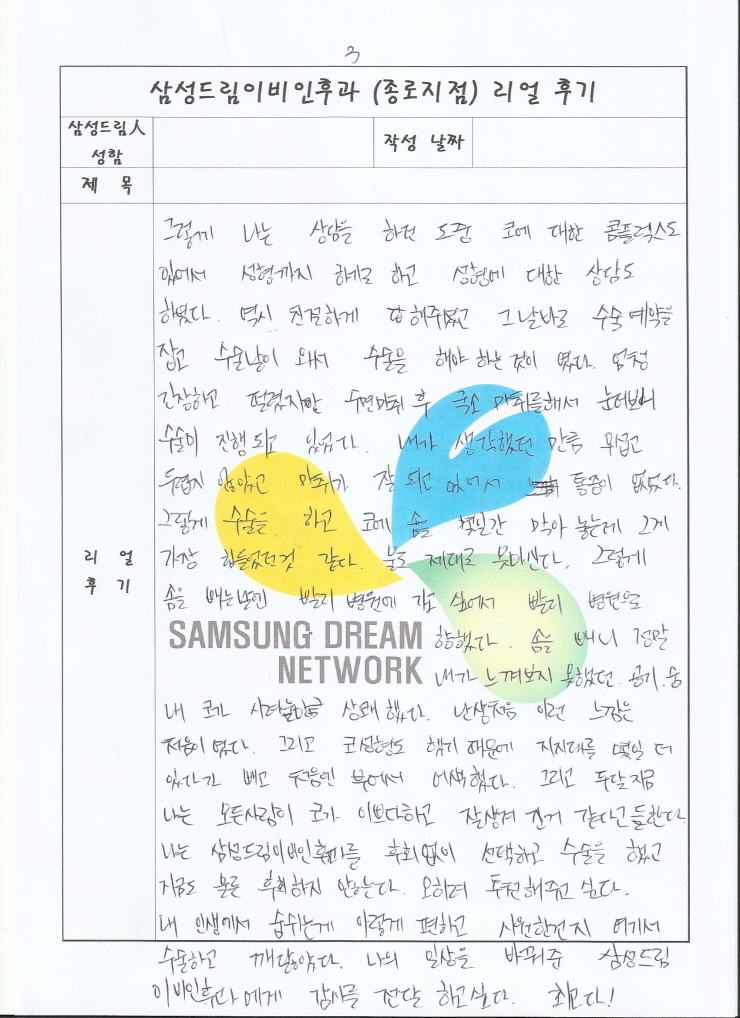 3
삼성드림이비인후과 (종로지점) 리얼 후기
삼성드림人
성함
작성 날짜
제 목
리 얼
후 기
그렇게 나는 상담을 하던 도중 코에 대한 콤플렉스도
있어서 성형까지 하기로 하고 성형에 대한 상담도
하였다. 역시 친절하게 답해주었고 그날바로 수술예약을
잡고 수술날이 와서 수술을 해야 하는 것이 였다. 엄청
긴장하고 떨렸지만 수면마취 후 국소 마취를해서 눈떠보니
수술이 진행 되고 있었다. 내가 생각했던 만큼 무섭고
두렵지 않았고 마취가 잘 되고 있어서 통증이 없었다.
그렇게 수술을 하고 코에 솜 몇일간 막아 놓는데 그게
가장 힘들었던것 같다. 물도 제대로 못마신다. 그렇게
솜을 빼는날엔 빨리 병원에 가고 싶어서 빨리 병원으로
향했다. 솜을 빼니 정말
SAMSUNG DREAM
NETWORK
내가 느껴보지 못했던 공기, 숨
내 코가 시려울만큼 상쾌 했다. 난생처음 이런 느낌은
처음이 였다. 그리고 코성형도 했기 때문에 지지대를 몇일 더
있다가 빼고 처음엔 부어서 어색했다. 그리고 두달지금
나는 모든사람이 코가 이쁘다하고 잘생겨 진거 같다고들한다.
나는 삼성드림이비인후과를 후회없이 선택하고 수술을 했고
지금도 물론 후회하지 않는다. 오히려 추천해주고 싶다.
내 인생에서 숨쉬는게 이렇게 편하고 시원한건지 여기서
수술하고 깨달았다. 나의 일상을 바꿔준 삼성드림
이비인후과에게 감사를 전달 하고싶다. 최고다!